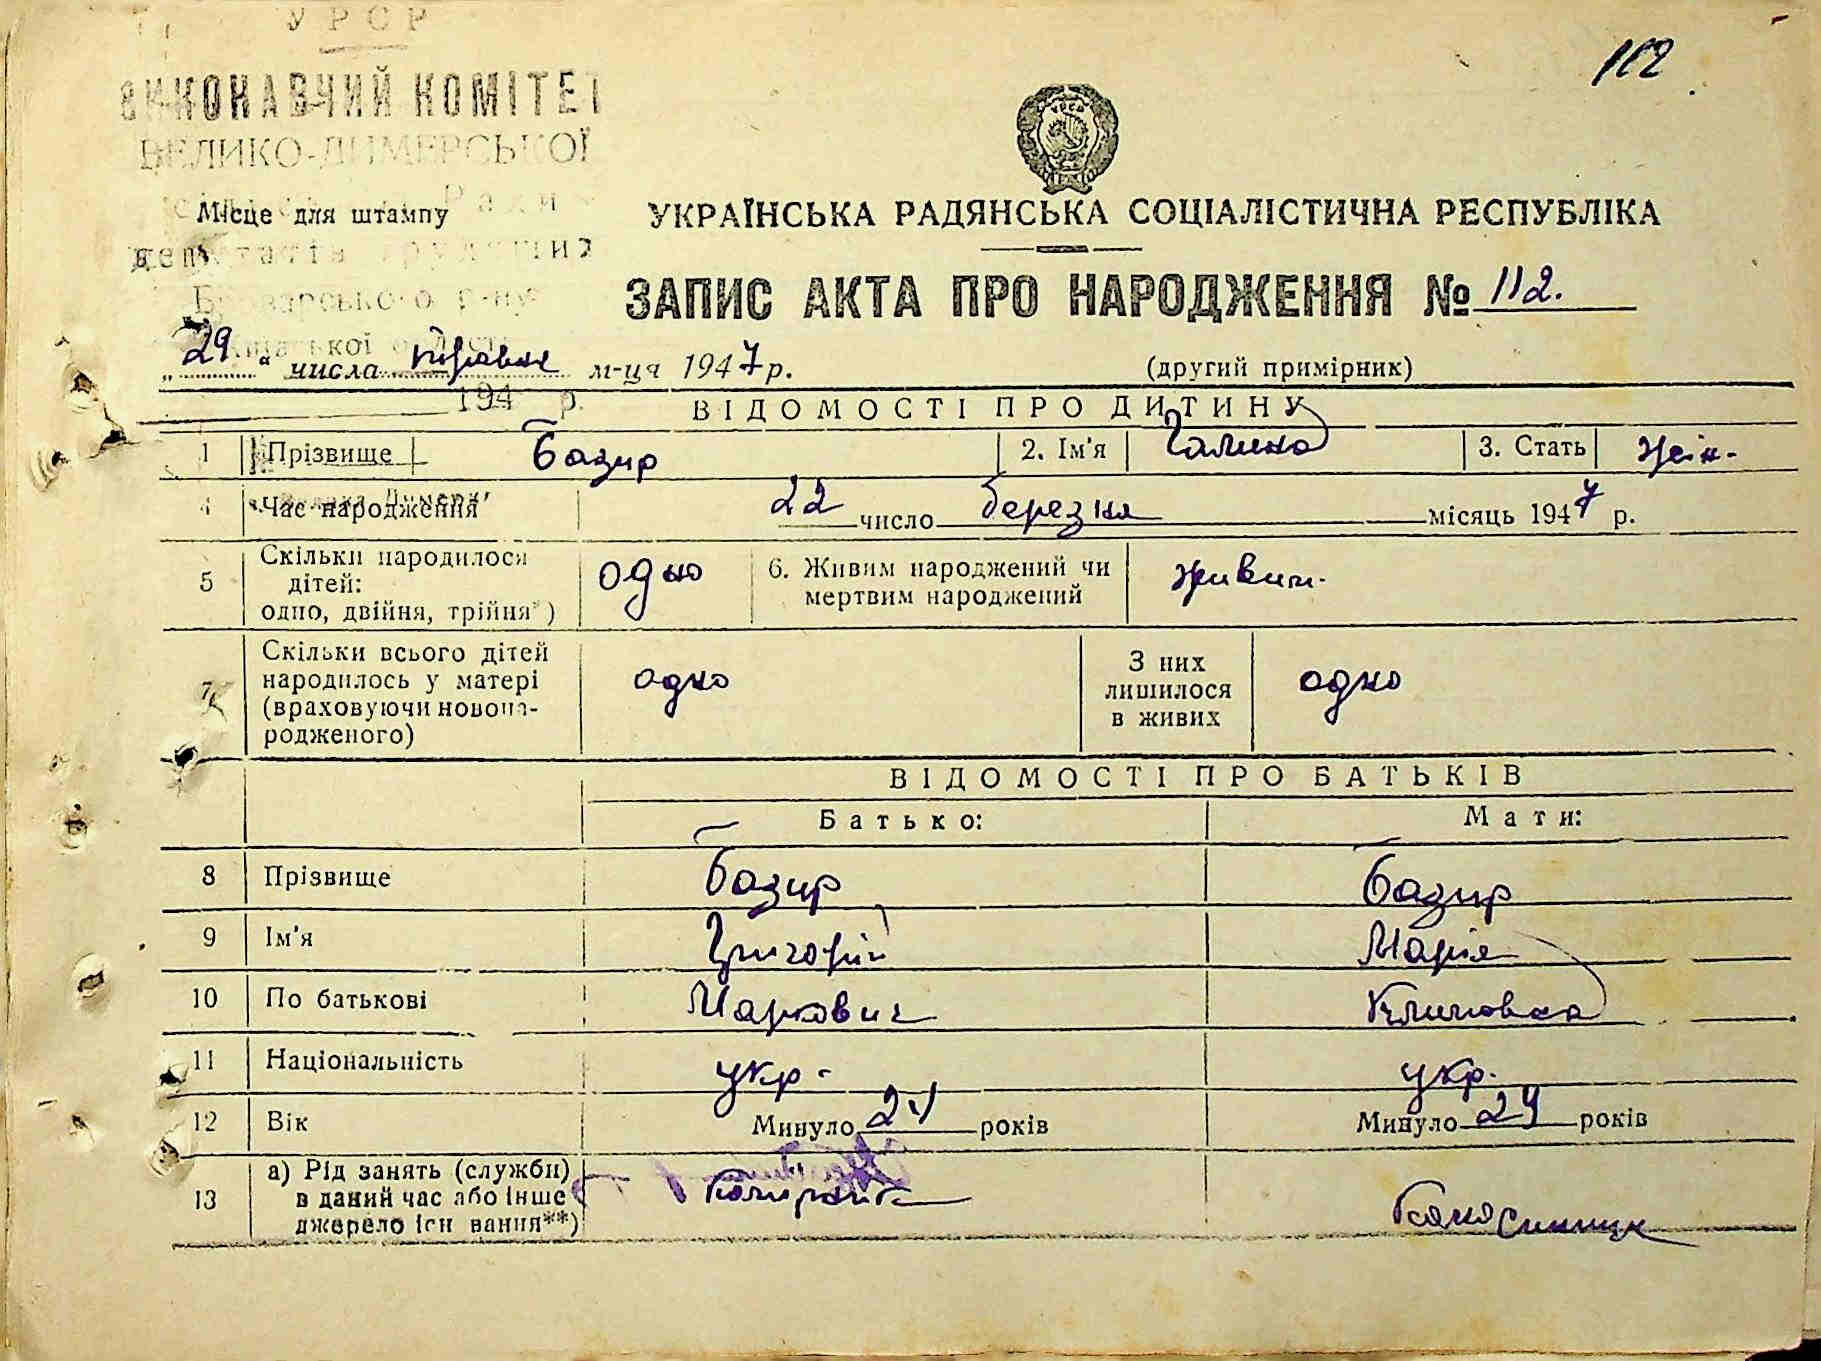 УРСР
112
ВИКОНАВЧИЙ КОМІТЕТ
ВЕЛИКО-ДИМЕРСЬКОЇ
Ради
Місце для штампу
депутатів трудящих
УКРАЇНСЬКА РАДЯНСЬКА СОЦІАЛІСТИЧНА РЕСПУБЛІКА
Броварського р-ну
ЗАПИС АКТА ПРО НАРОДЖЕННЯ № 112.
Київської області
„29" числа травня м-ця 1947 р.
(другий примірник)
194 р.
ВІДОМОСТІ ПРО ДИТИНУ
1 Прізвище Базир 2. Ім'я Галина 3. Стать жін.
4 Час народження 22 число березня місяць 1947 р.
5 Скільки народилося дітей: одно, двійня, трійня*) одно 6. Живим народжений чи мертвим народжений живим.
7 Скільки всього дітей народилось у матері (враховуючи новонародженого) одно З них лишилося в живих одно
ВІДОМОСТІ ПРО БАТЬКІВ
Батько: Мати:
8 Прізвище Базир Базир
9 Ім'я Григорій Марія
10 По батькові Маркович
11 Національність укр. укр.
12 Вік Минуло 24 років Минуло 24 років
13 а) Рід занять (служби) в даний час або інше джерело існування**)